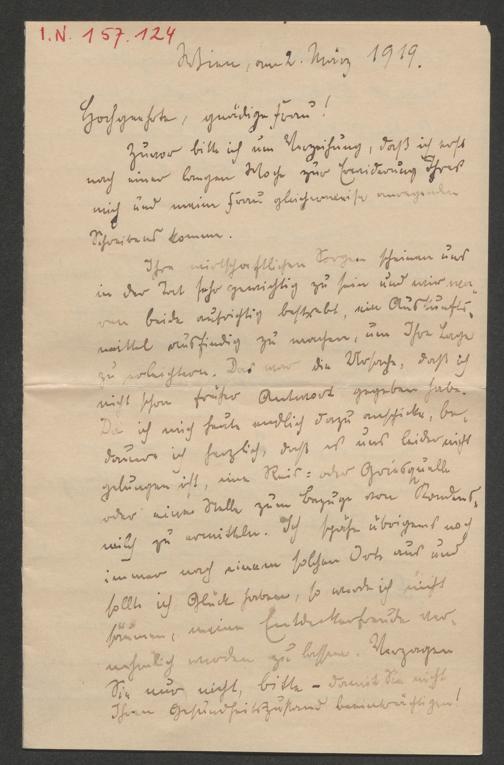 I.N. 157.124
Wien, am 2. März 1919.
Hochgeehrte, gnädige Frau!
Zuvor bitte ich um Verzeihung, daß ich erst
nach einer langen Woche zur Erwiderung Ihres
mich und meine Frau gleicherweise anregenden
Schreibens komme.
Ihre wirtschaftlichen Sorgen scheinen uns
in der Tat sehr gewichtig zu sein und wir wa-
ren beide aufrichtig bestrebt, ein Auskunfts-
mittel ausfindig zu machen, um Ihre Lage
zu erleichtern. Das war die Ursache, daß ich
nicht schon früher Antwort gegeben habe.
Da ich mich heute endlich dazu anschicke, be-
daure ich herzlich, daß es uns leider nicht
gelungen ist, eine Reis- oder Griesquelle
oder eine Stelle zum Bezuge von Kondens-
milch zu ermitteln. Ich spähe übrigens noch
immer nach einem solchen Orte aus und
sollte ich Glück haben, so werde ich nicht
säumen, meine Entdeckerfreude ver-
nehmlich werden zu lassen. Verzagen
Sie nur nicht, bitte – damit Sie nicht
Ihren Gesundheitszustand beeinträchtigen!